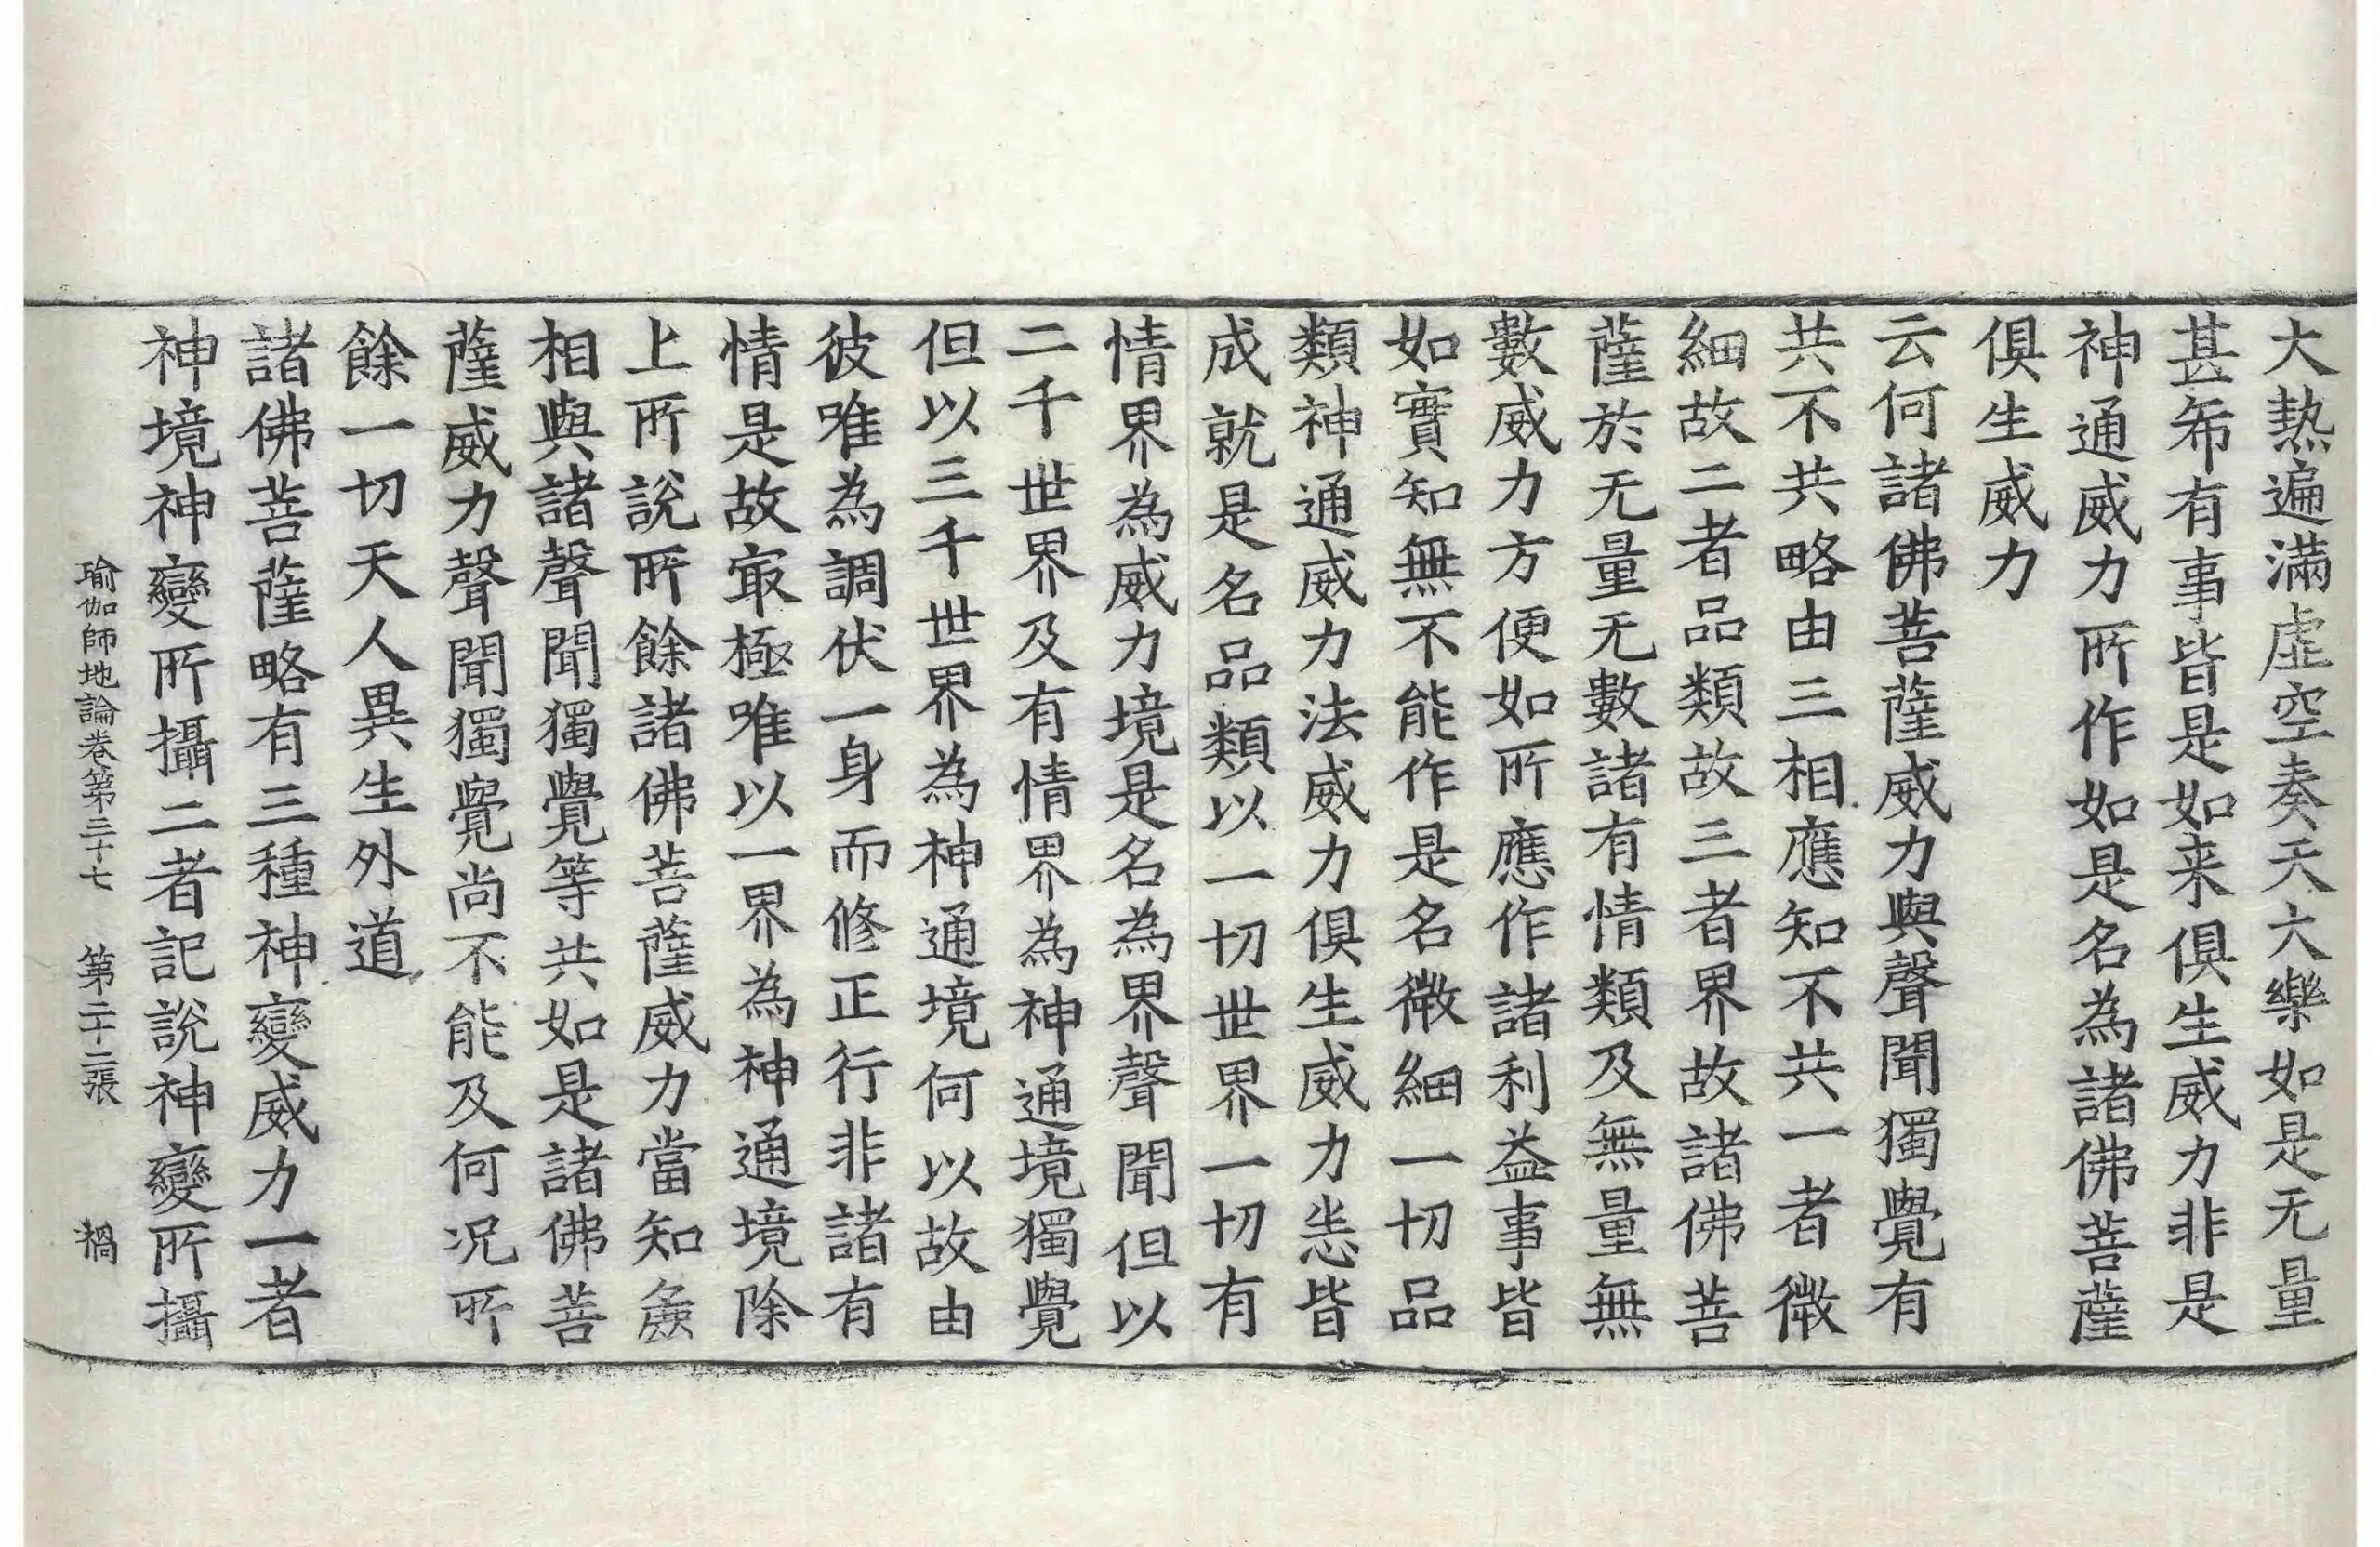 大熱遍滿虛空奏天大樂如是无量
甚希有事皆是如来俱生威力非是
神通威力所作如是名為諸佛菩薩
俱生威力
云何諸佛菩薩威力與聲聞獨覺有
共不共略由三相應知不共一者微
細故二者品類故三者界故諸佛菩
薩於无量无數諸有情類及無量無
數威力方便如所應作諸利益事皆
如實知無不能作是名微細一切品
類神通威力法威力俱生威力恙皆
成就是名品類以一切世界一切有
情界為威力境是名為界聲聞但以
二千世界及有情界為神通境獨覺
但以三千世界為神通境何以故由
彼唯為調伏一身而修正行非諸有
情是故㝡極唯以一界為神通境除
上所說所餘諸佛菩薩威力當知麁
相與諸聲聞獨覺等共如是諸佛菩
薩威力聲聞獨覺尚不能及何况所
餘一切天人異生外道
諸佛菩薩略有三種神變威力一者
神境神變所攝二者記說神變所攝
瑜伽師地論卷第三十七 第二十二張 禍